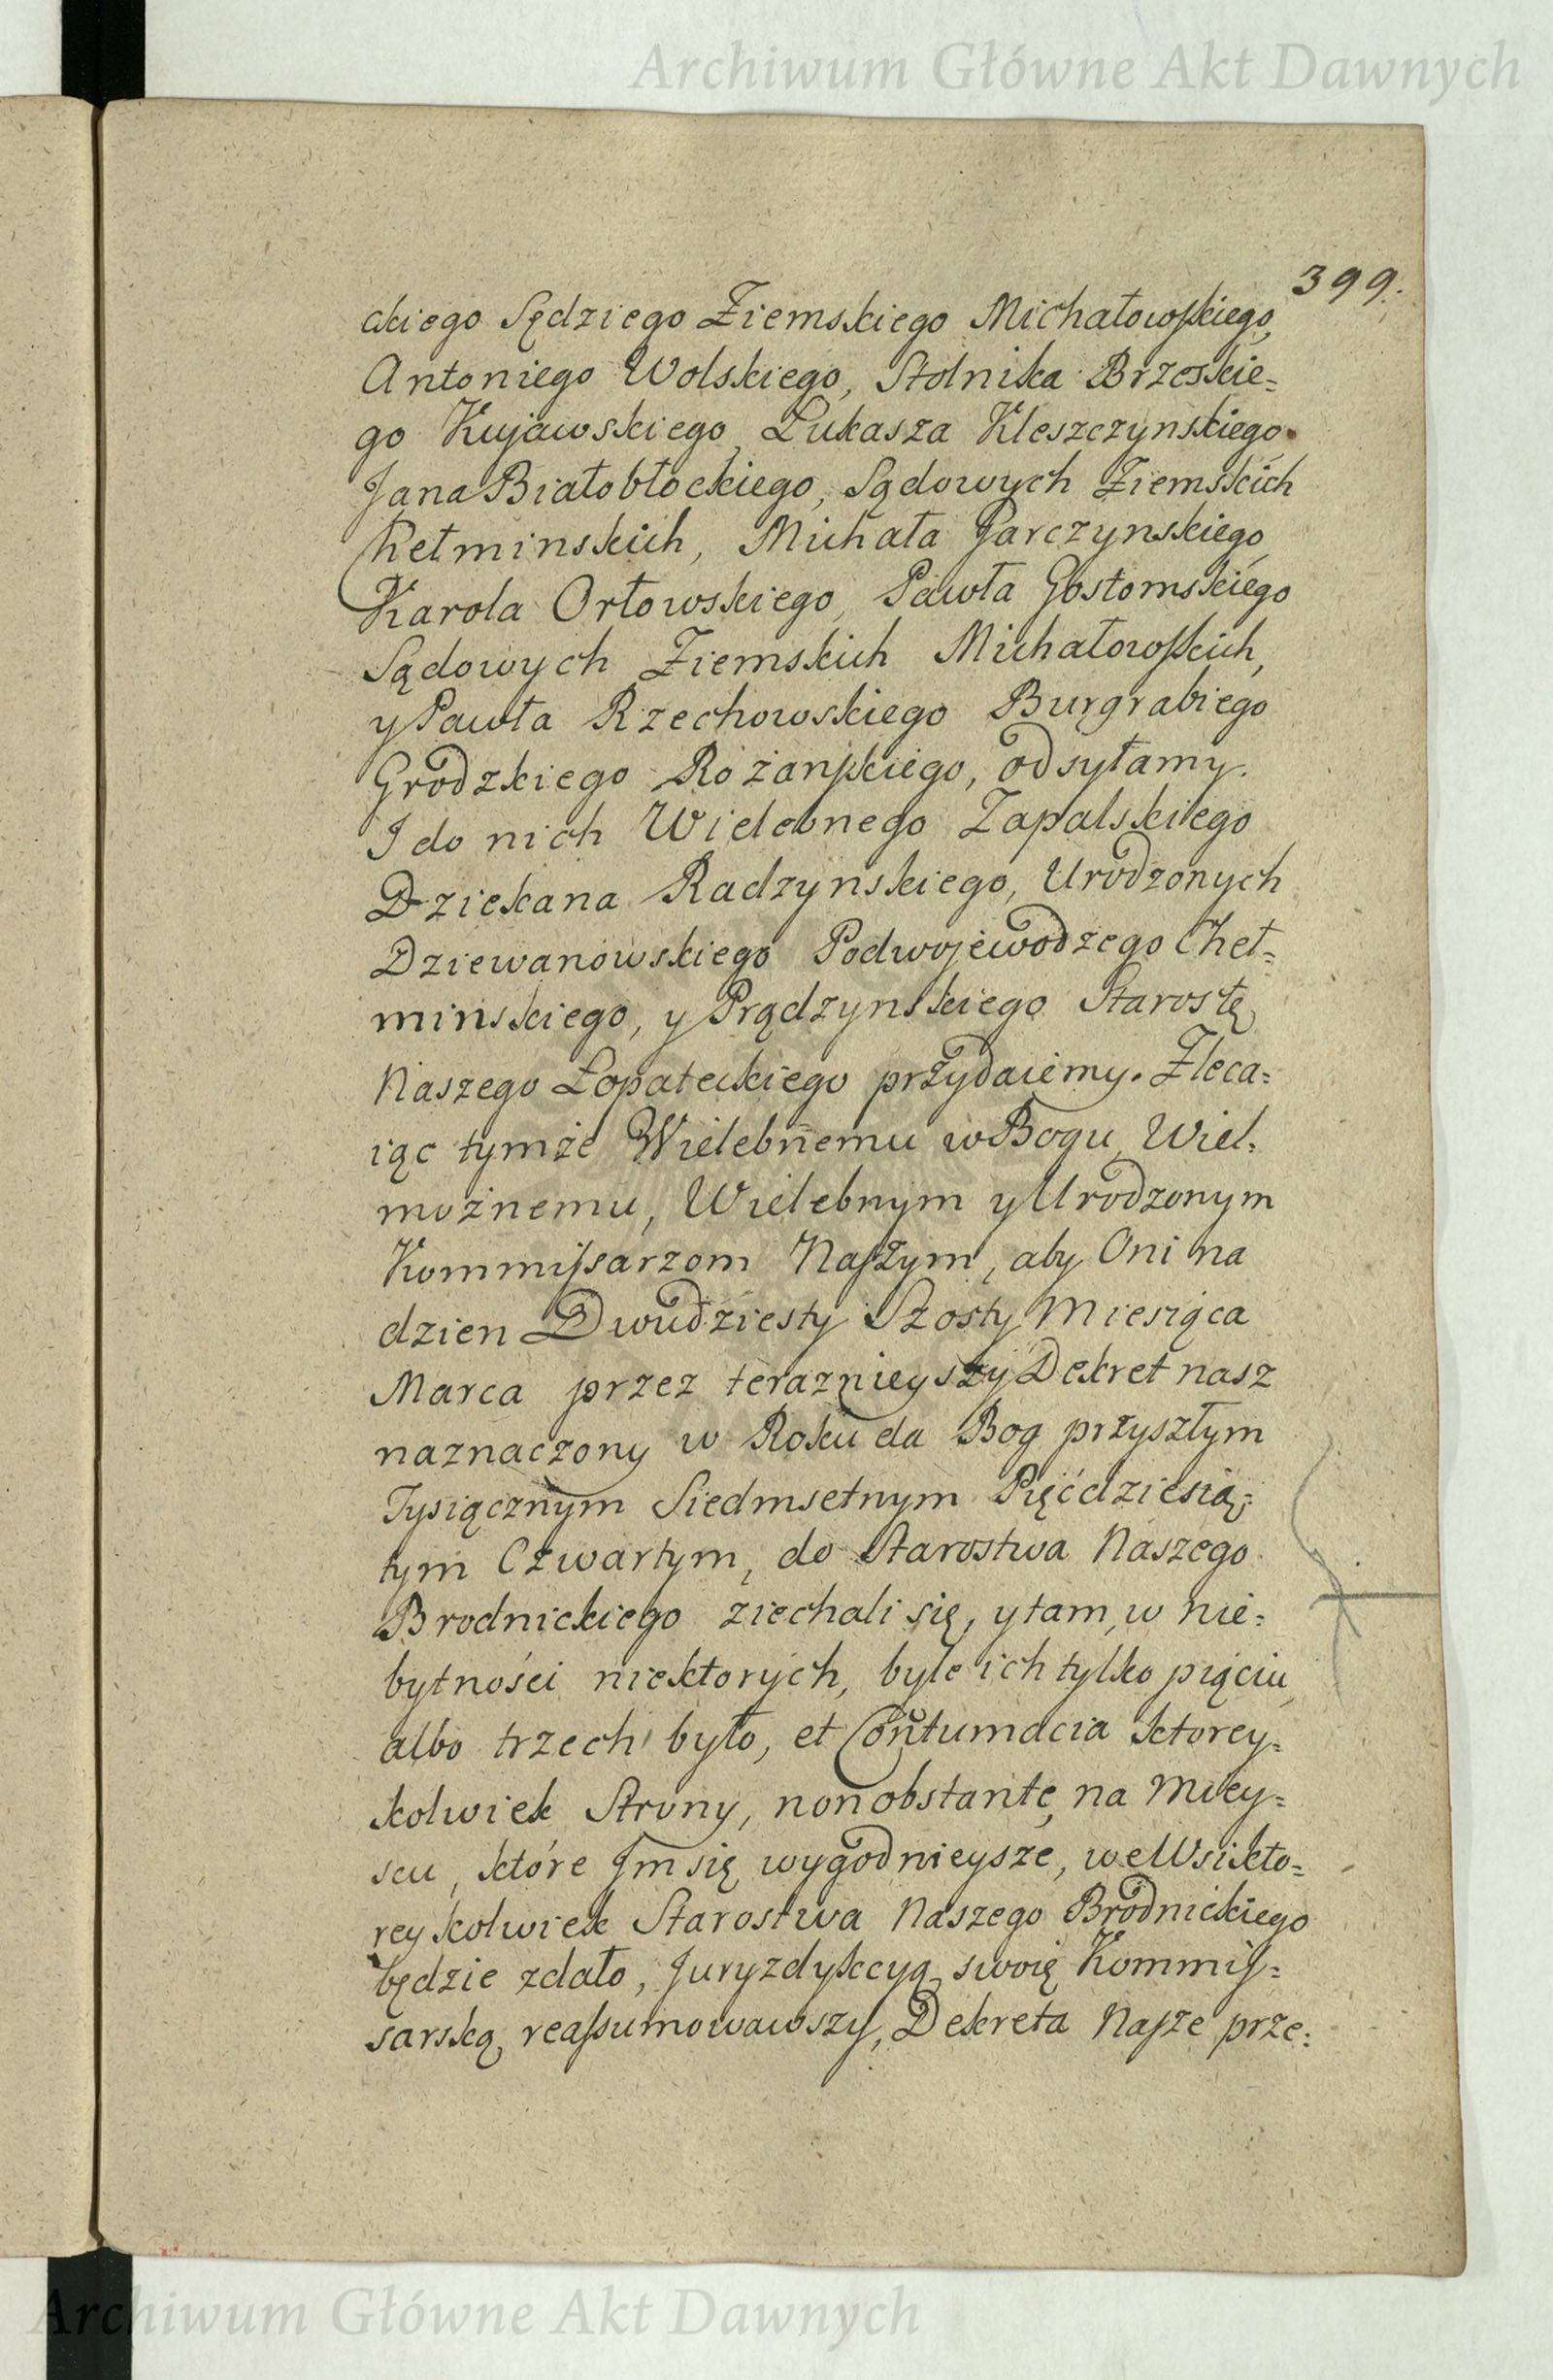 Archiwum Główne Akt Dawnych
399.
ckiego Sędziego Ziemskiego Michałowskiego,
Antoniego Wolskiego, Stolnika Brzeskie=
go Kujawskiego, Łukasza Kleszczynskiego
Jana Białobłockiego, Sądowych Ziemskich
Chełminskich, Michała Jarczynskiego,
Karola Orłowskiego, Pawła Gostomskiego
Sądowych Ziemskich Michałowskich,
y Pawła Rzechowskiego Burgrabiego
Grodzkiego Rożanskiego, odsyłamy.
I do nich Wielebnego Zapalskiego
Dziekana Radzynskiego, Urodzonych
Dziewanowskiego Podwojewodzego Cheł=
minskiego, y Prądzynskiego Starostę
Naszego Łopateckiego przydaiemy. Zleca=
iąc tymże Wielebnemu w Bogu, Wiel=
możnemu, Wielebnym y Urodzonym
Kommissarzom Naszym, aby Oni na
dzien Dwudziesty Szosty Miesiąca
Marca przez terazniey szy Dekret nasz
naznaczony w Roku da Bog przyszłym
Tysiącznym Siedmsetnym Pięćdziesią=
tym Czwartym, do Starostwa Naszego
Brodnickiego ziechali się, y tam, w nie=
bytności niektorych, byle ich tylko pięciu,
albo trzech było, et Contumacia ktorey=
kolwiek Strony, non obstante, na Miey=
scu, które Jm się wygodnieysze, we Wsi kto=
rey kolwiek Starostwa Naszego Brodnickiego
będzie zdało, Juryzdykcyą swoię Kommis=
sarską reassumowawszy, Dekreta Nasze prze=
Archiwum Główne Akt Dawnych